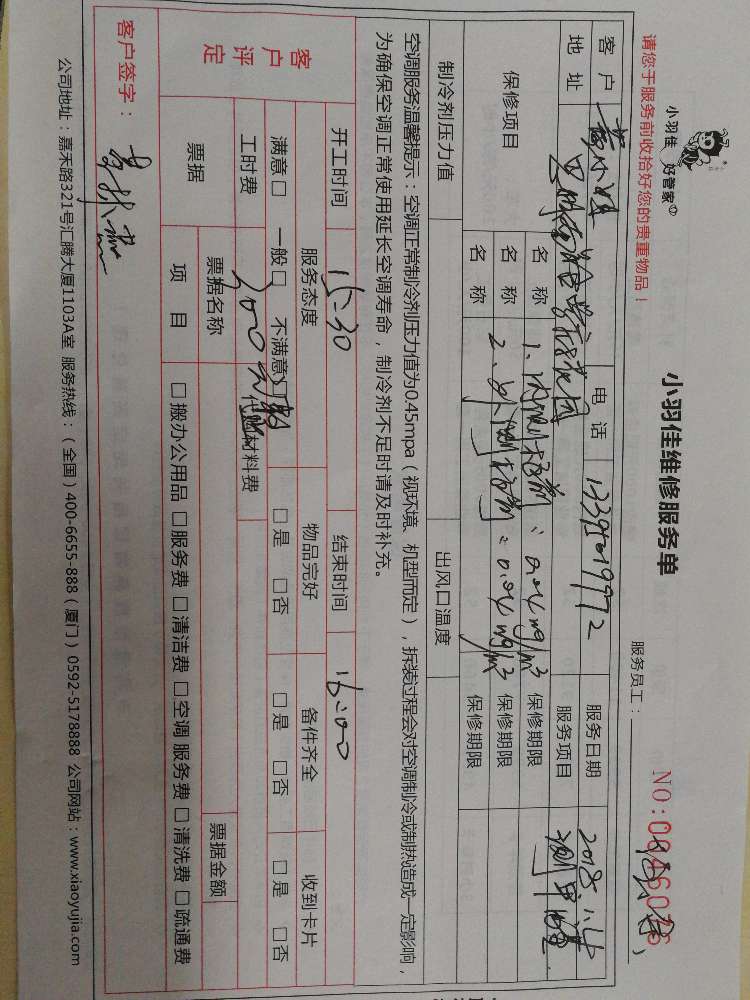 小羽佳 好管家
小羽佳维修服务单
NO:0046026
请您于服务前收拾好您的贵重物品！
服务员工：
客户 电话 13395019972 服务日期 2018.11.4
地址 服务项目 测甲醛
保修项目 名称 1. 内测指前：0.04mg/m³ 保修期限
名称 2. 保修期限
名称 保修期限
制冷剂压力值 出风口温度
空调服务温馨提示：空调正常制冷剂压力值为0.45mpa（视环境、机型而定），拆装过程会对空调制冷或制热造成一定影响，
为确保空调正常使用延长空调寿命，制冷剂不足时请及时补充。
开工时间 15:30 结束时间 16:00
客户评定
服务态度 物品完好 备件齐全 收到卡片
满意□ 一般□ 不满意□ □是 □否 □是 □否 □是 □否
工时费 200元 代购材料费
票据 票据名称 票据金额
项目 □搬办公用品 □服务费 □清洁费 □空调服务费 □清洗费 □疏通费
客户签字：
公司地址：嘉禾路321号汇腾大厦1103A室 服务热线：（全国）400-6655-888（厦门）0592-5178888 公司网站：www.xiaoyujia.com